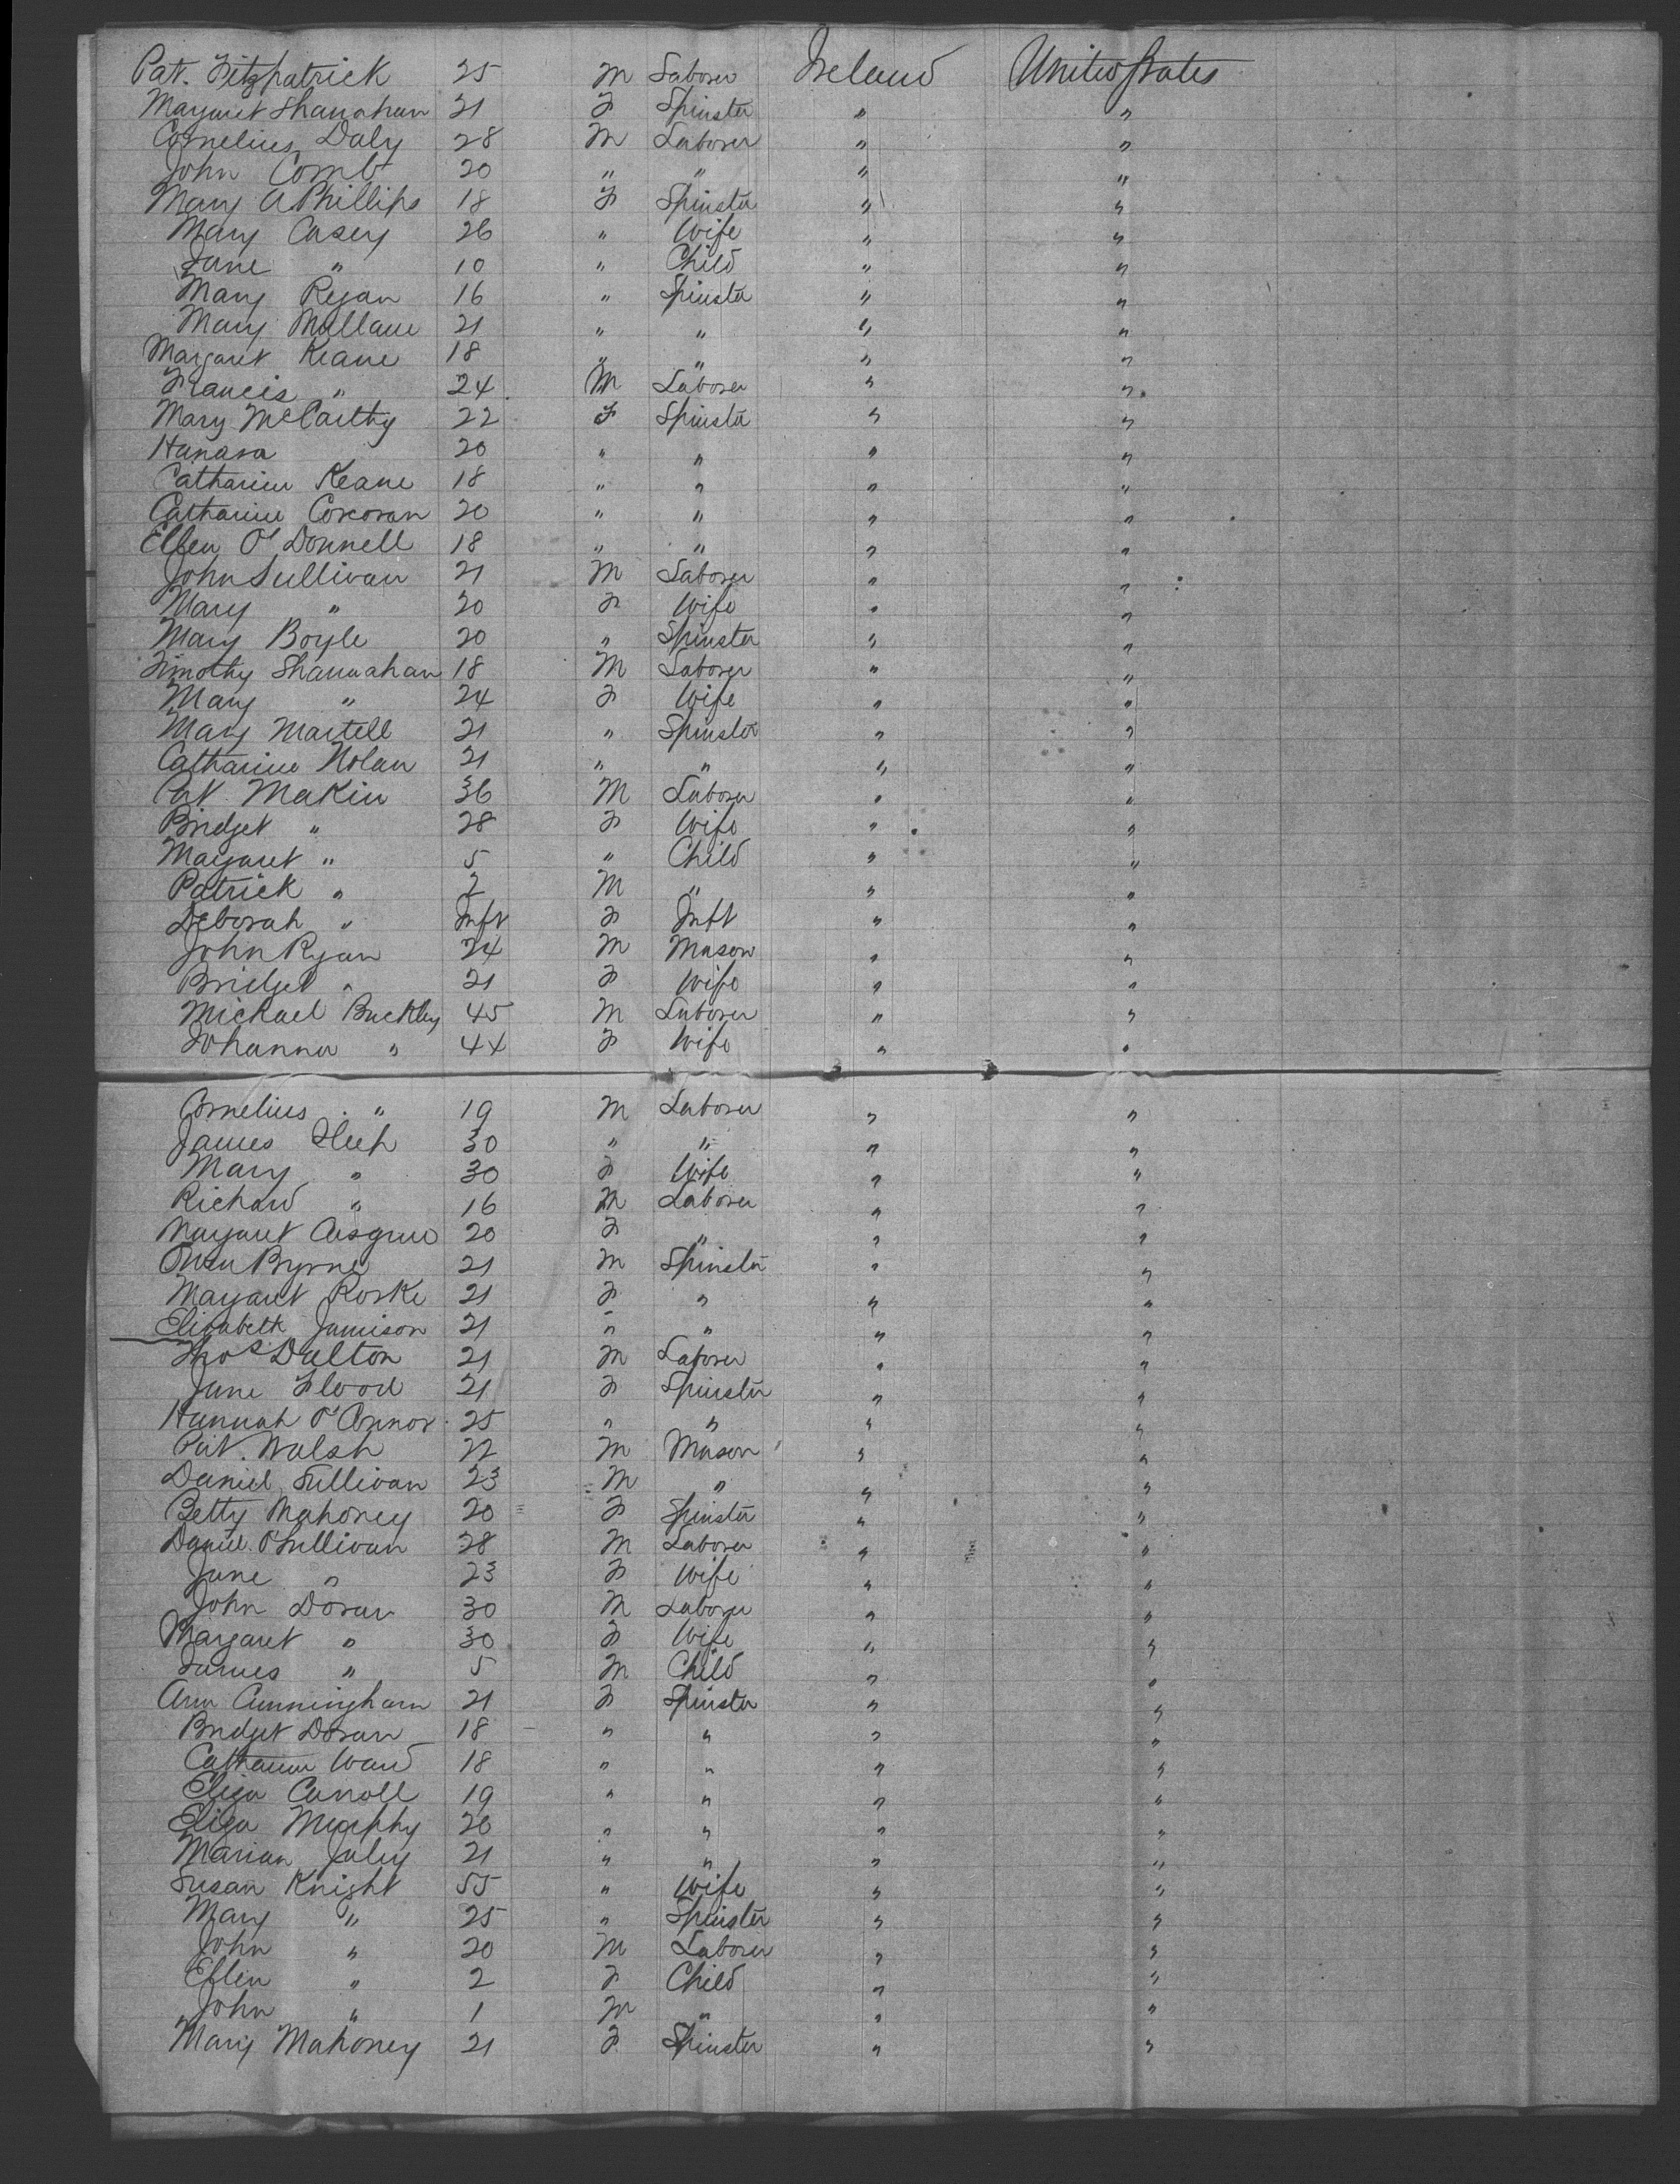 Pat. Fitzpatrick 25 M Laborer Ireland United States
Margaret Shanahan 21 F Spinster " "
Cornelius Daly 28 M Laborer " "
John Comb 20 " " " "
Mary A Phillips 18 F Spinster " "
Mary Casey 26 " Wife " "
Jane " 10 " Child " "
Mary Regan 16 " Spinster " "
Mary Mullane 21 " " " "
Margaret Keane 18 " " " "
Francis " 24 M Laborer " "
Mary McCarthy 22 F Spinster " "
Hanara 20 " " " "
Catharine Keane 18 " " " "
Catharine Corcoran 20 " " " "
Ellen O'Donnell 18 " " " "
John Sullivan 21 M Laborer " "
Mary " 20 F Wife " "
Mary Boyle 20 " Spinster " "
Timothy Shannahan 18 M Laborer " "
Mary " 24 F Wife " "
Mary Martell 21 " Spinster " "
Catharine Nolan 21 " " " "
Pat. Makin 36 M Laborer " "
Bridget " 28 F Wife " "
Margaret " 5 " Child " "
Patrick " 2 M " " "
Deborah " Inft F Inft " "
John Ryan 24 M Mason " "
Bridget " 21 F Wife " "
Michael Buckley 45 M Laborer " "
Johanna " 44 F Wife " "
Cornelius " 19 M Laborer " "
James 30 " " " "
Mary " 30 F Wife " "
Richard " 16 M Laborer " "
Margaret 20 F " " "
Owen Byrne 21 M Spinster " "
Margaret Rorke 21 F " " "
Elizabeth Jamison 21 " " " "
Thos Dalton 21 M Laborer " "
Jane Flood 21 F Spinster " "
Hannah O'Connor 25 " " " "
Pat. Walsh 22 M Mason " "
Daniel Sullivan 23 M " " "
Betty Mahoney 20 F Spinster " "
Daniel O'Sullivan 28 M Laborer " "
Jane " 23 F Wife " "
John Doran 30 M Laborer " "
Margaret " 30 F Wife " "
James " 5 M Child " "
Ann Cunningham 21 F Spinster " "
Bridget Doran 18 " " " "
Catharine Ward 18 " " " "
Eliza Carroll 19 " " " "
Eliza Murphy 20 " " " "
Marian 21 " " " "
Susan Knight 55 " Wife " "
Mary " 25 " Spinster " "
John " 20 M Laborer " "
Ellen " 2 F Child " "
John " 1 M " " "
Mary Mahoney 21 F Spinster " "